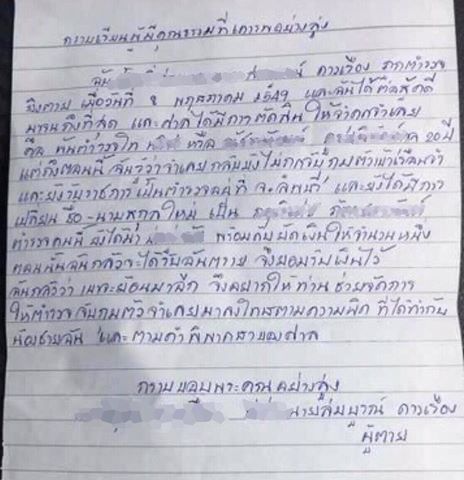 กราบเรียนผู้มีคุณธรรมที่เคารพอย่างสูง
ฉัน ดาวเรือง ถูกตำรวจ
ยิงตาย เมื่อวันที่ 8 พฤษภาคม 2549 และฉันได้ติดสู้คดี
มาจนถึงที่สุด และศาลได้มีการตัดสิน ให้จำคุกจำเลย
คือ นายตำรวจใด หรือ 20 ปี
แต่ถึงตอนนี้ ฉันรู้ว่าจำเลยกลับยังไม่ถูกจับกุมตัวเข้าเรือนจำ
และยังรับราชการเป็นตำรวจ และยังได้มีการ
เปลี่ยน ชื่อ-นามสกุลใหม่ เป็น
ตำรวจคนนี้ ยังได้นำ พร้อมกับยัดเงินให้จำนวนหนึ่ง
ตอนนั้นฉันกลัวจะได้รับอันตราย จึงยอมรับเงินไว้
ฉันกลัวว่า เขาจะย้อนมาอีก จึงอยากให้ท่านช่วยจัดการ
ให้ตำรวจจับกุมตัวจำเลยมาลงโทษตามความผิด ที่ได้ทำกับ
น้องชายฉัน และตามคำพิพากษาของศาล
กราบขอบพระคุณอย่างสูง
นายสมบูรณ์ ดาวเรือง
ผู้ตาย